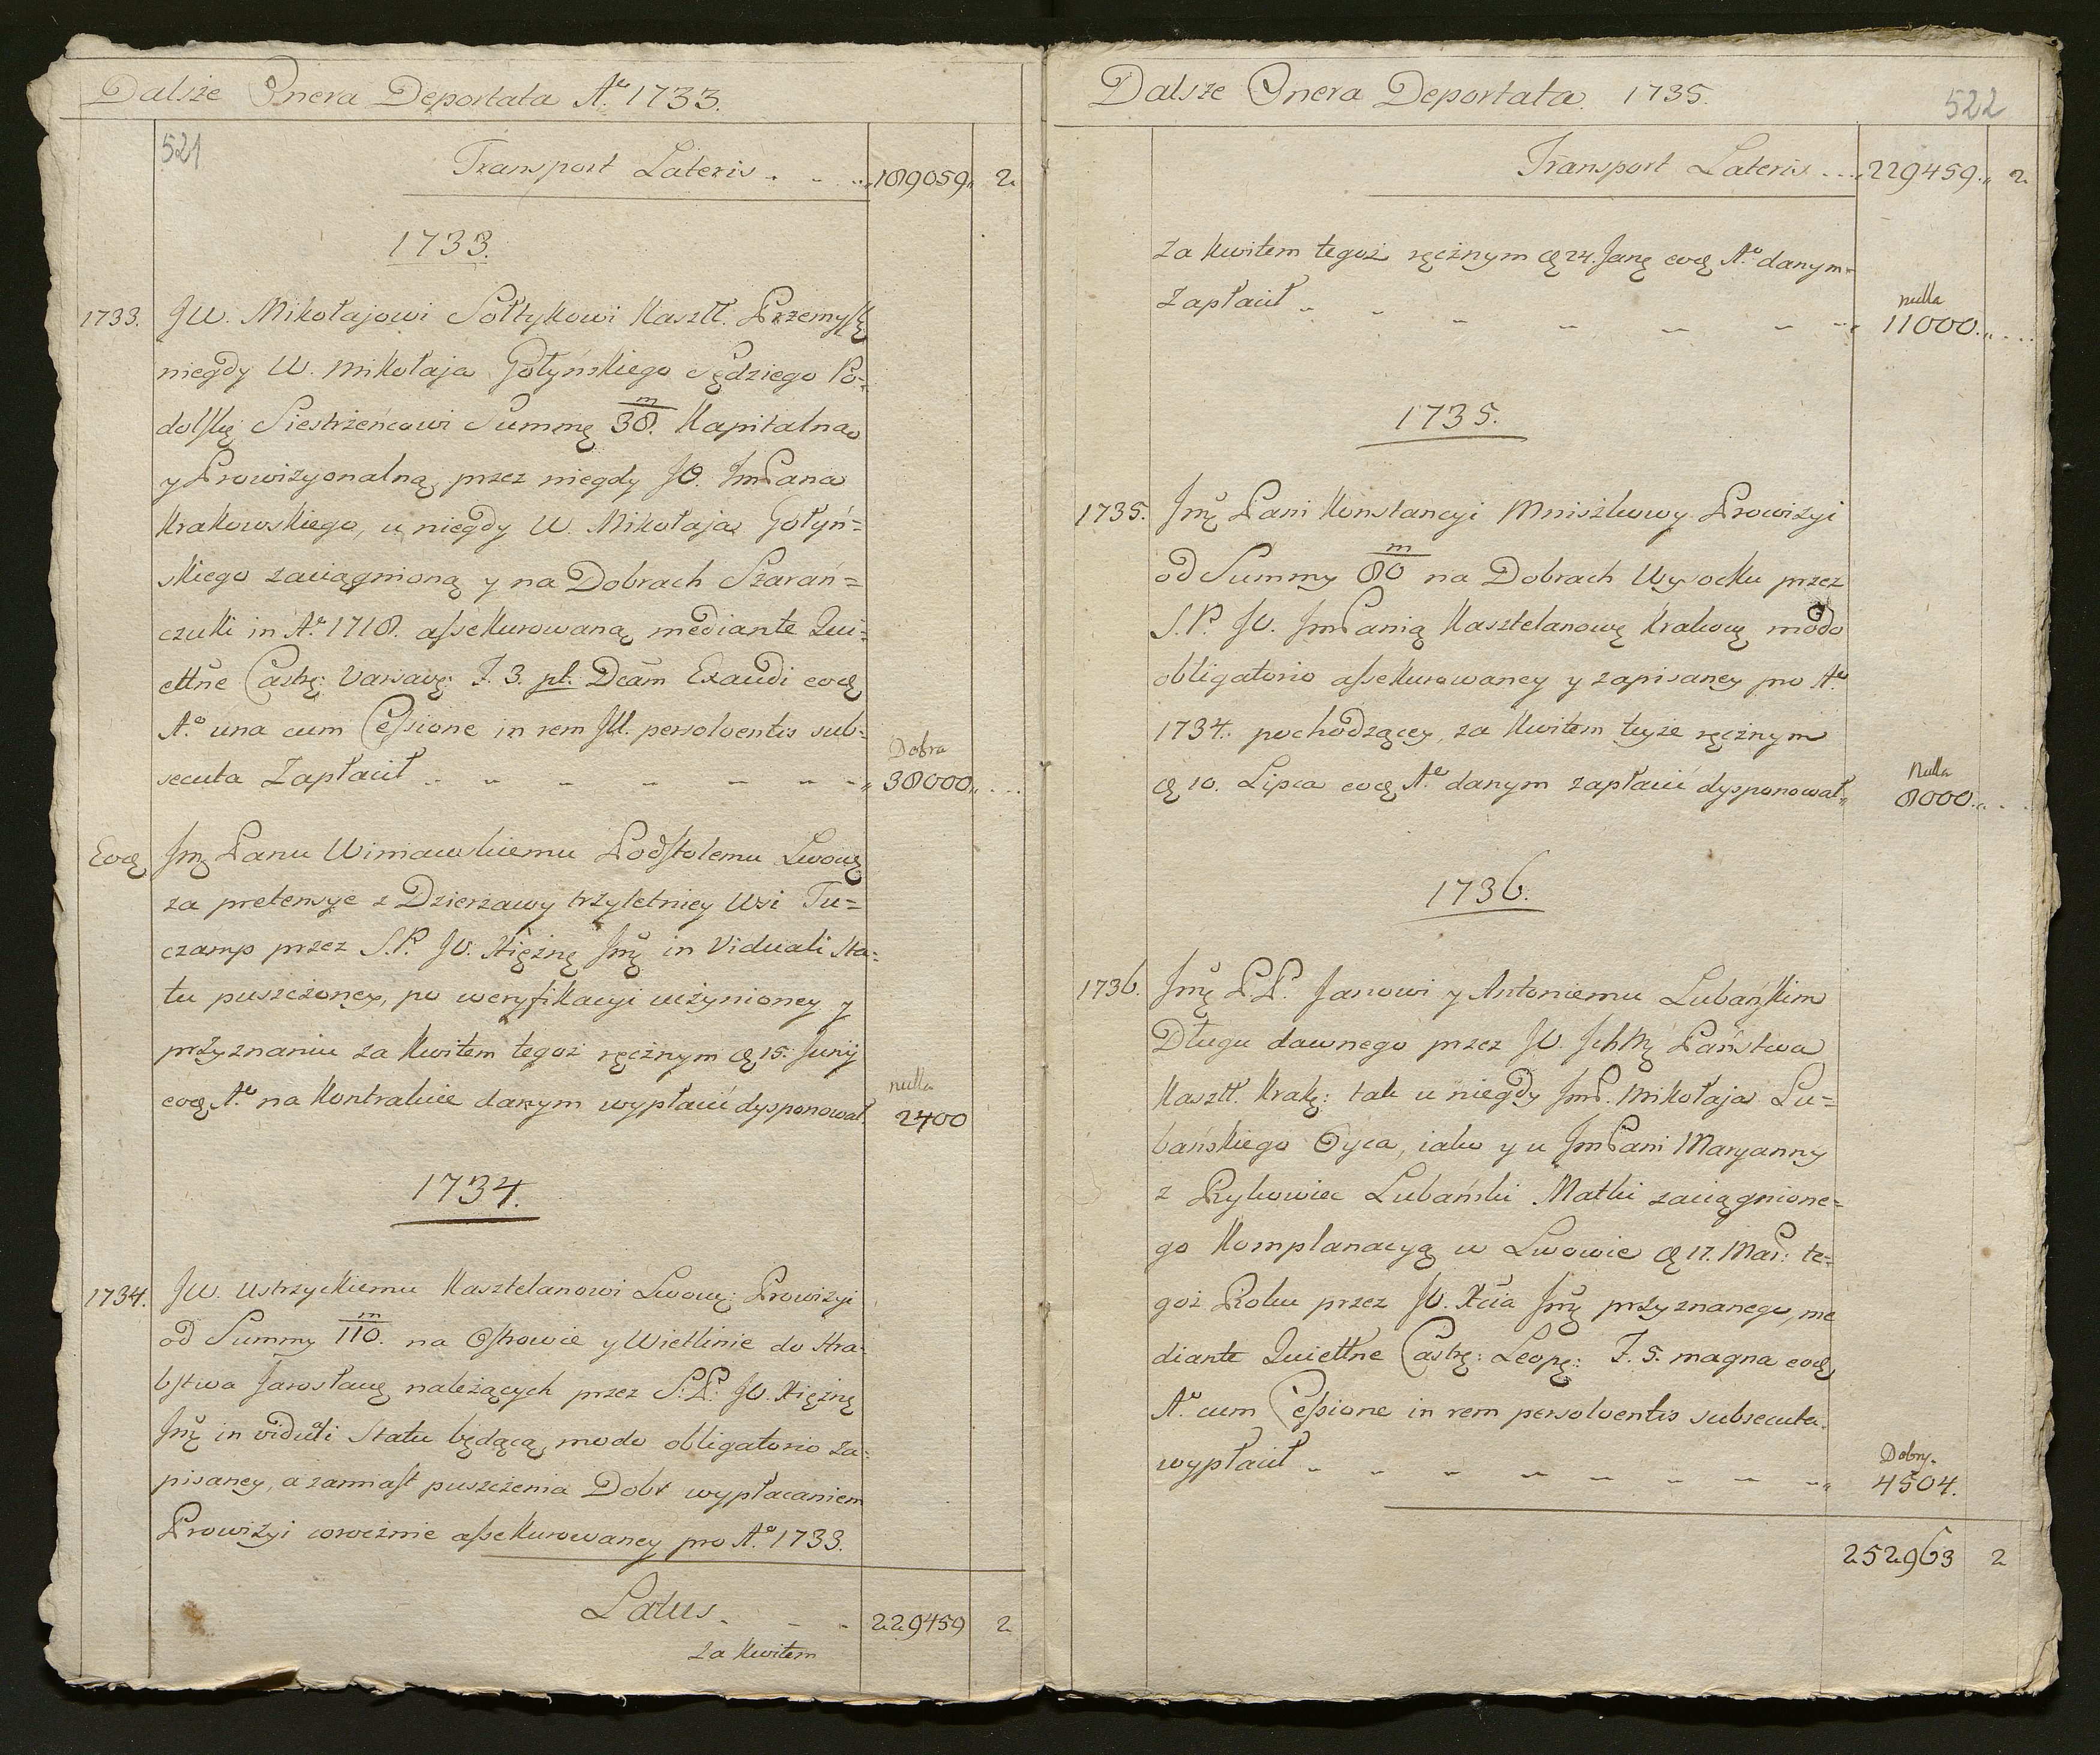 Dalsze Onera Deportata Aº 1733.
521
Transport Lateris . - . „ 189059 „ 2
1733.
1733. JW. Mikołajowi Sołtykowi Kasztt. Przemyskę
niegdy W. Mikołaja Gołyńskiego Sędziego Po-
dolskę Siestrzeńcowi Summę m/38. Kapitalną
y Prowizyonalną, przez niegdy JO. ImPana
Krakowskiego, u niegdy W. Mikołaja Gołyń=
skiego zaciągnioną y na Dobrach Szarań=
czuki in Aº 1718. assekurowaną mediante Qui=
ettñe Castrę: Varsavę: F. 3. pt. Dcãm Exaudi eodę
Aº una cum Cessione in rem JW. persolventis sub=
secuta Zapłacił - - - - - - - „
Dobra
38000 „ ...
Eodę Jmę Panu Winiawskiemu Podstolemu Lwowę
za pretensye z Dzierzawy trzyletniey Wsi Tu=
czamp przez S.P. JO. Xiężnę Jmę in Viduali Sta=
tu puszczoney, po weryfikacyi uczynioney y
przyznaniu za Kwitem tegoż ręcznym dę 15. Junij
eodę Aº na Kontrakcie danym wypłacić dysponował.
nulla
2400
1734.
1734. JW. Ustrzyckiemu Kasztelanowi Lwowę: Prowizyi
od Summy m/110. na Ostrowie y Wietlinie do Hra=
bstwa Jarosławę należących przez S:P: JO. Xiężnę
Jmę in viduali Statu będącą, modo obligatorio za=
pisaney, a zamiast puszczenia Dobr wypłacaniem
Prowizyi corocznie assekurowaney pro Aº 1733.
Latus . - - - 229459 2
Za Kwitem
Dalsze Onera Deportata. 1735.
522
Transport Lateris . . . „ 229459 „ 2
Za Kwitem tegoż ręcznym dę 24. Janę eodę Aº danym
Zapłacił - - - - - - - „
nulla
11000 „ ...
1735.
1735. Jmę Pani Konstancyi Mniszkowy Prowizyi
od Summy m/80 na Dobrach Wysocku przez
S.P. JO. JmPanią Kasztelanową Krakowę modo
obligatorio assekurowaney y zapisaney pro Aº
1734. pochodzącey, za Kwitem teyże ręcznym
dę 10. Lipca eodę Aº danym zapłacić dysponował „
Nulla
8000 „ . .
1736.
1736. Jmę PP. Janowi y Antoniemu Lubańskim
Długu dawnego przez JO. Jchmę Państwa
Kasztt. Krakę: tak u niegdy JmP. Mikołaja Lu=
bańskiego Oyca, iako y u JmPani Maryanny
z Rykowicz Lubański Matki zaciągnione=
go Komplanacyą w Lwowie dę 17. Mar: te=
goż Roku przez JO. Xcia Jmę przyznanego, me
diante Quiettñe Castrę: Leopę: F. 5. magna eodę
Aº cum Cessione in rem persolventis subsecuta.
wypłacił - - - - - - - - „
Dobry.
4504.
252963 2